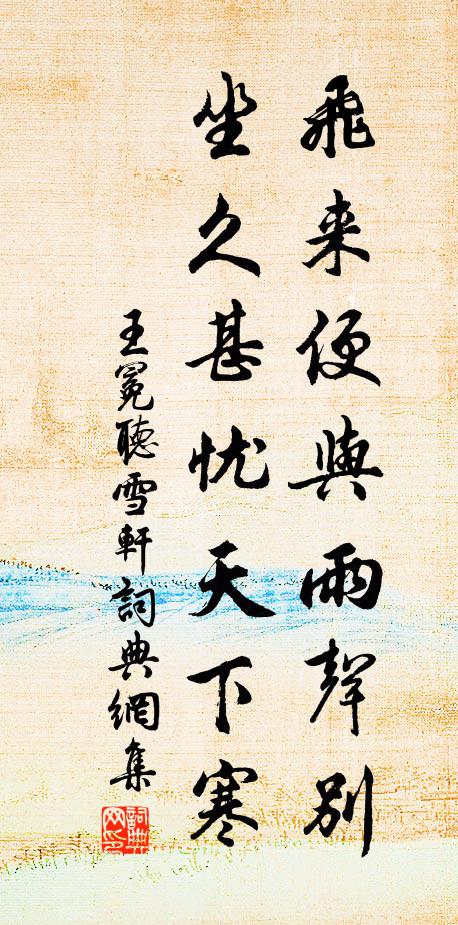 飛来便與雨聲别
坐久甚忧天下寒
王冕聽雪軒詞典網集
詞典網印